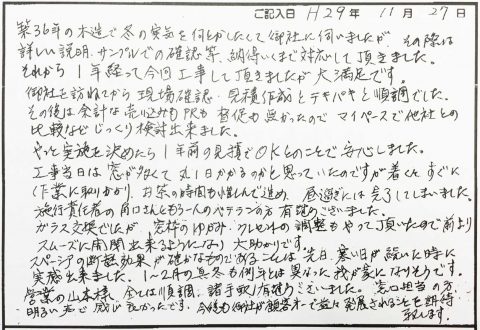 ご記入日 H29年 11月 27日
築36年の木造で冬の寒気を何とかしたくて御社に伺いましたが、その際は
詳しい説明、サンプルでの確認等、納得いくまで対応して頂きました。
それから1年経って今回工事して頂きましたが大満足です。
御社を訪ねてから現場確認・見積作成とテキパキと順調でした。
その後は余計な売り込みもPRも督促も無かったのでマイペースで他社との
比較などじっくり検討出来ました。
やっと実施を決めたら1年前の見積でOKとのことで安心しました。
工事当日は窓が多くて丸1日かかるのかと思っていたのですが着くやすぐに
作業に取りかかり、お茶の時間も惜しんで進め、昼過ぎには完了してしまいました。
施行責任者の角口さんともう一人のベテランの方有難うございました。
ガラス交換でしたが、窓枠のゆがみ・クレセントの調整もやって頂いたので前より
スムーズに開閉出来るようになり大助かりです。
スペーシアの断熱効果が確かなものであることは先日、寒い日が続いた時に
実感出来ました。1〜2月の真冬も例年とは異なった我が家になりそうです。
営業の山本様、全ては順調、諸手配有難うございました。窓口担当の方、
明るい応対で感じ良かったです。今後も御社が顧客本位で益々発展されることを期待
致します。